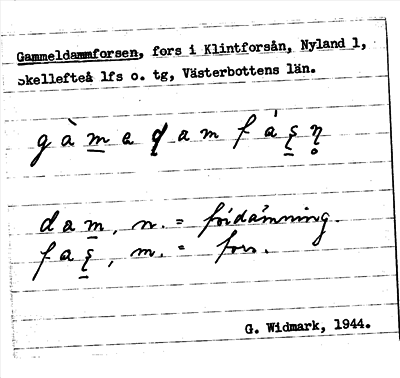 Gammeldammforsen, fors i Klintforsån, Nyland 1,
Skellefteå lfs o. tg, Västerbottens län.
gàmadam fáşn̥
dam, n. = fördämning.
faş, m. = fors.
G. Widmark, 1944.